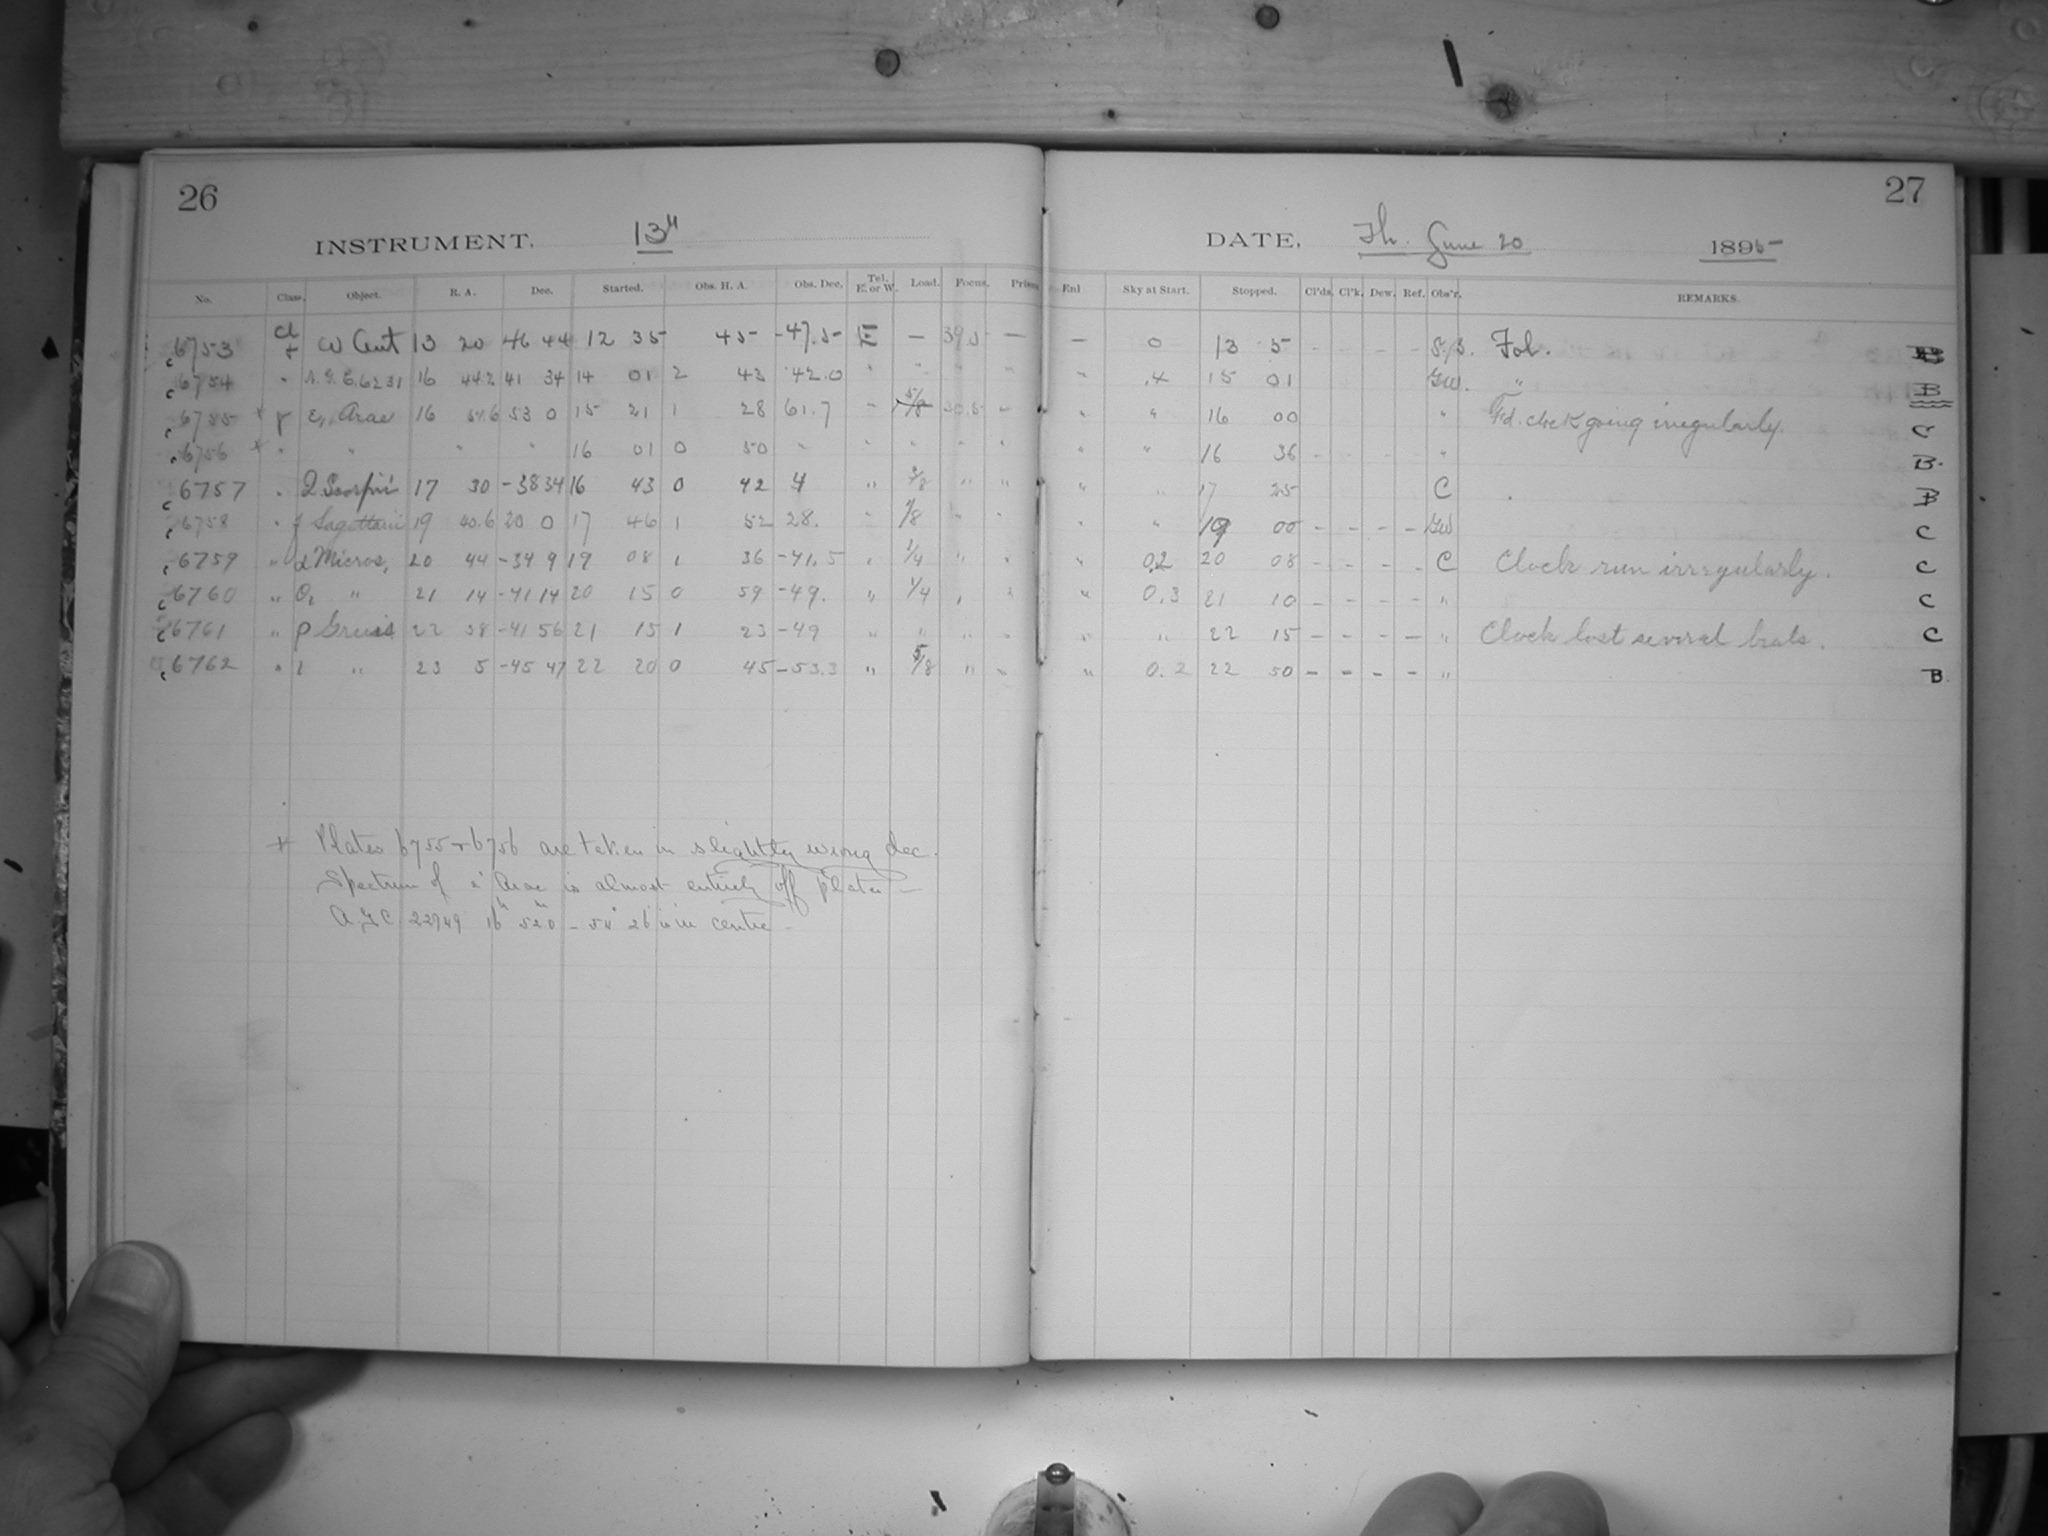 26
INSTRUMENT. 13"
No. Class. Object. R. A. Dec. Started. Obs. H. A. Obs. Dec. Tel. E. or W. Load. Focus. Prism
6753 Cl + ω Cent 13 20 46 44 12 35 45 -47.5 E — 39.5 —
6754 " N.G.C. 6231 16 44.2 41 34 14 01 2 43 42.0 " " " "
6755 * ε, Arae 16 51.6 53 0 15 21 1 28 61.7 " 5/8
6756 * " " " " 16 01 0 50 " " " " "
6757 " Scorpii 17 30 -38 34 16 43 0 42 " " "
6758 " Sagittarii 19 40.6 20 0 17 46 1 52 28. " "
6759 " α Micros, 20 44 -34 9 19 08 1 36 -41.5 " 1/4 " "
6760 " " 21 14 -41 14 20 15 0 59 -49. " 1/4 " "
6761 " ρ Gruis 22 38 -41 56 21 15 1 23 -49 " " " "
6762 " ι " 23 5 -45 47 22 20 0 45 -53.3 " 5/8 " "
* Plates 6755 + 6756 are taken in slightly wrong dec.
Spectrum of Arae is almost entirely off plates —
A.G.C. 22749 16h 52.0 - 54° 26 is in centre —
27
DATE, Th. June 20 1895
Enl Sky at Start. Stopped. Cl'ds. Cl'k. Dew. Ref. Obs'r. REMARKS.
— 0 13 5 - - - - Fol.
" 15 01 GW. " B
" " 16 00 " Fd. clock going irregularly. C
" " 16 36 - - - - " B.
" " 17 25 C B
" " 19 00 - - - - GW C
" 0.2 20 08 - - - - C Clock run irregularly. C
" 0.3 21 10 - - - - " C
" " 22 15 - - - - " Clock lost several beats. C
" 0.2 22 50 - - - - " B.